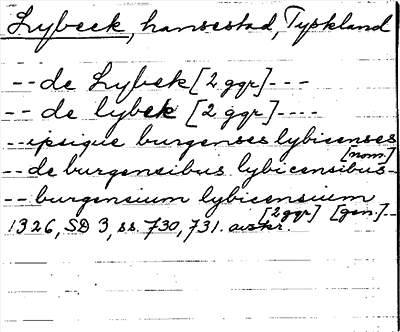 Lybeck, hansestad, Tyskland
-- de Lybek [2 ggr] ----
-- de lybek [2 ggr] ----
-- ipsique burgenses lybicenses [nom.]
-- de burgensibus lybicensibus --
-- burgensium lybicensium [2 ggr] [gen.] --
1326, SD 3, ss. 730, 731. avskr.